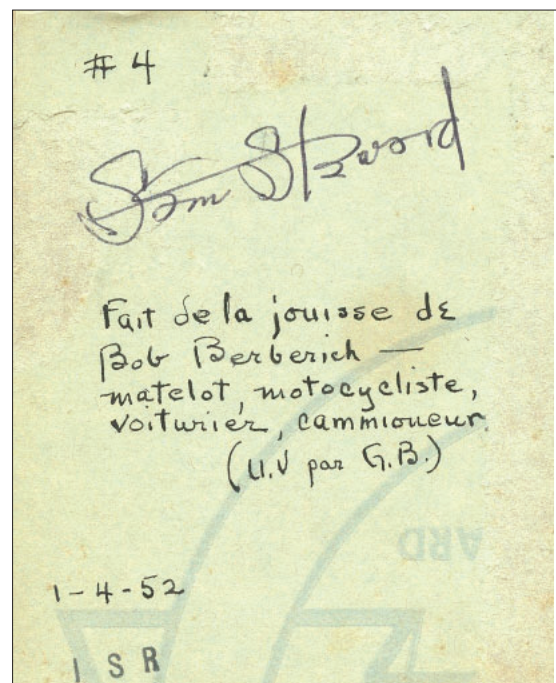 # 4
Sam Steward
Fait de la jouisse de
Bob Berberich —
matelot, motocycliste,
voiturier, cammioneur.
(U.V par G.B.)
ARD
1-4-52
I S R